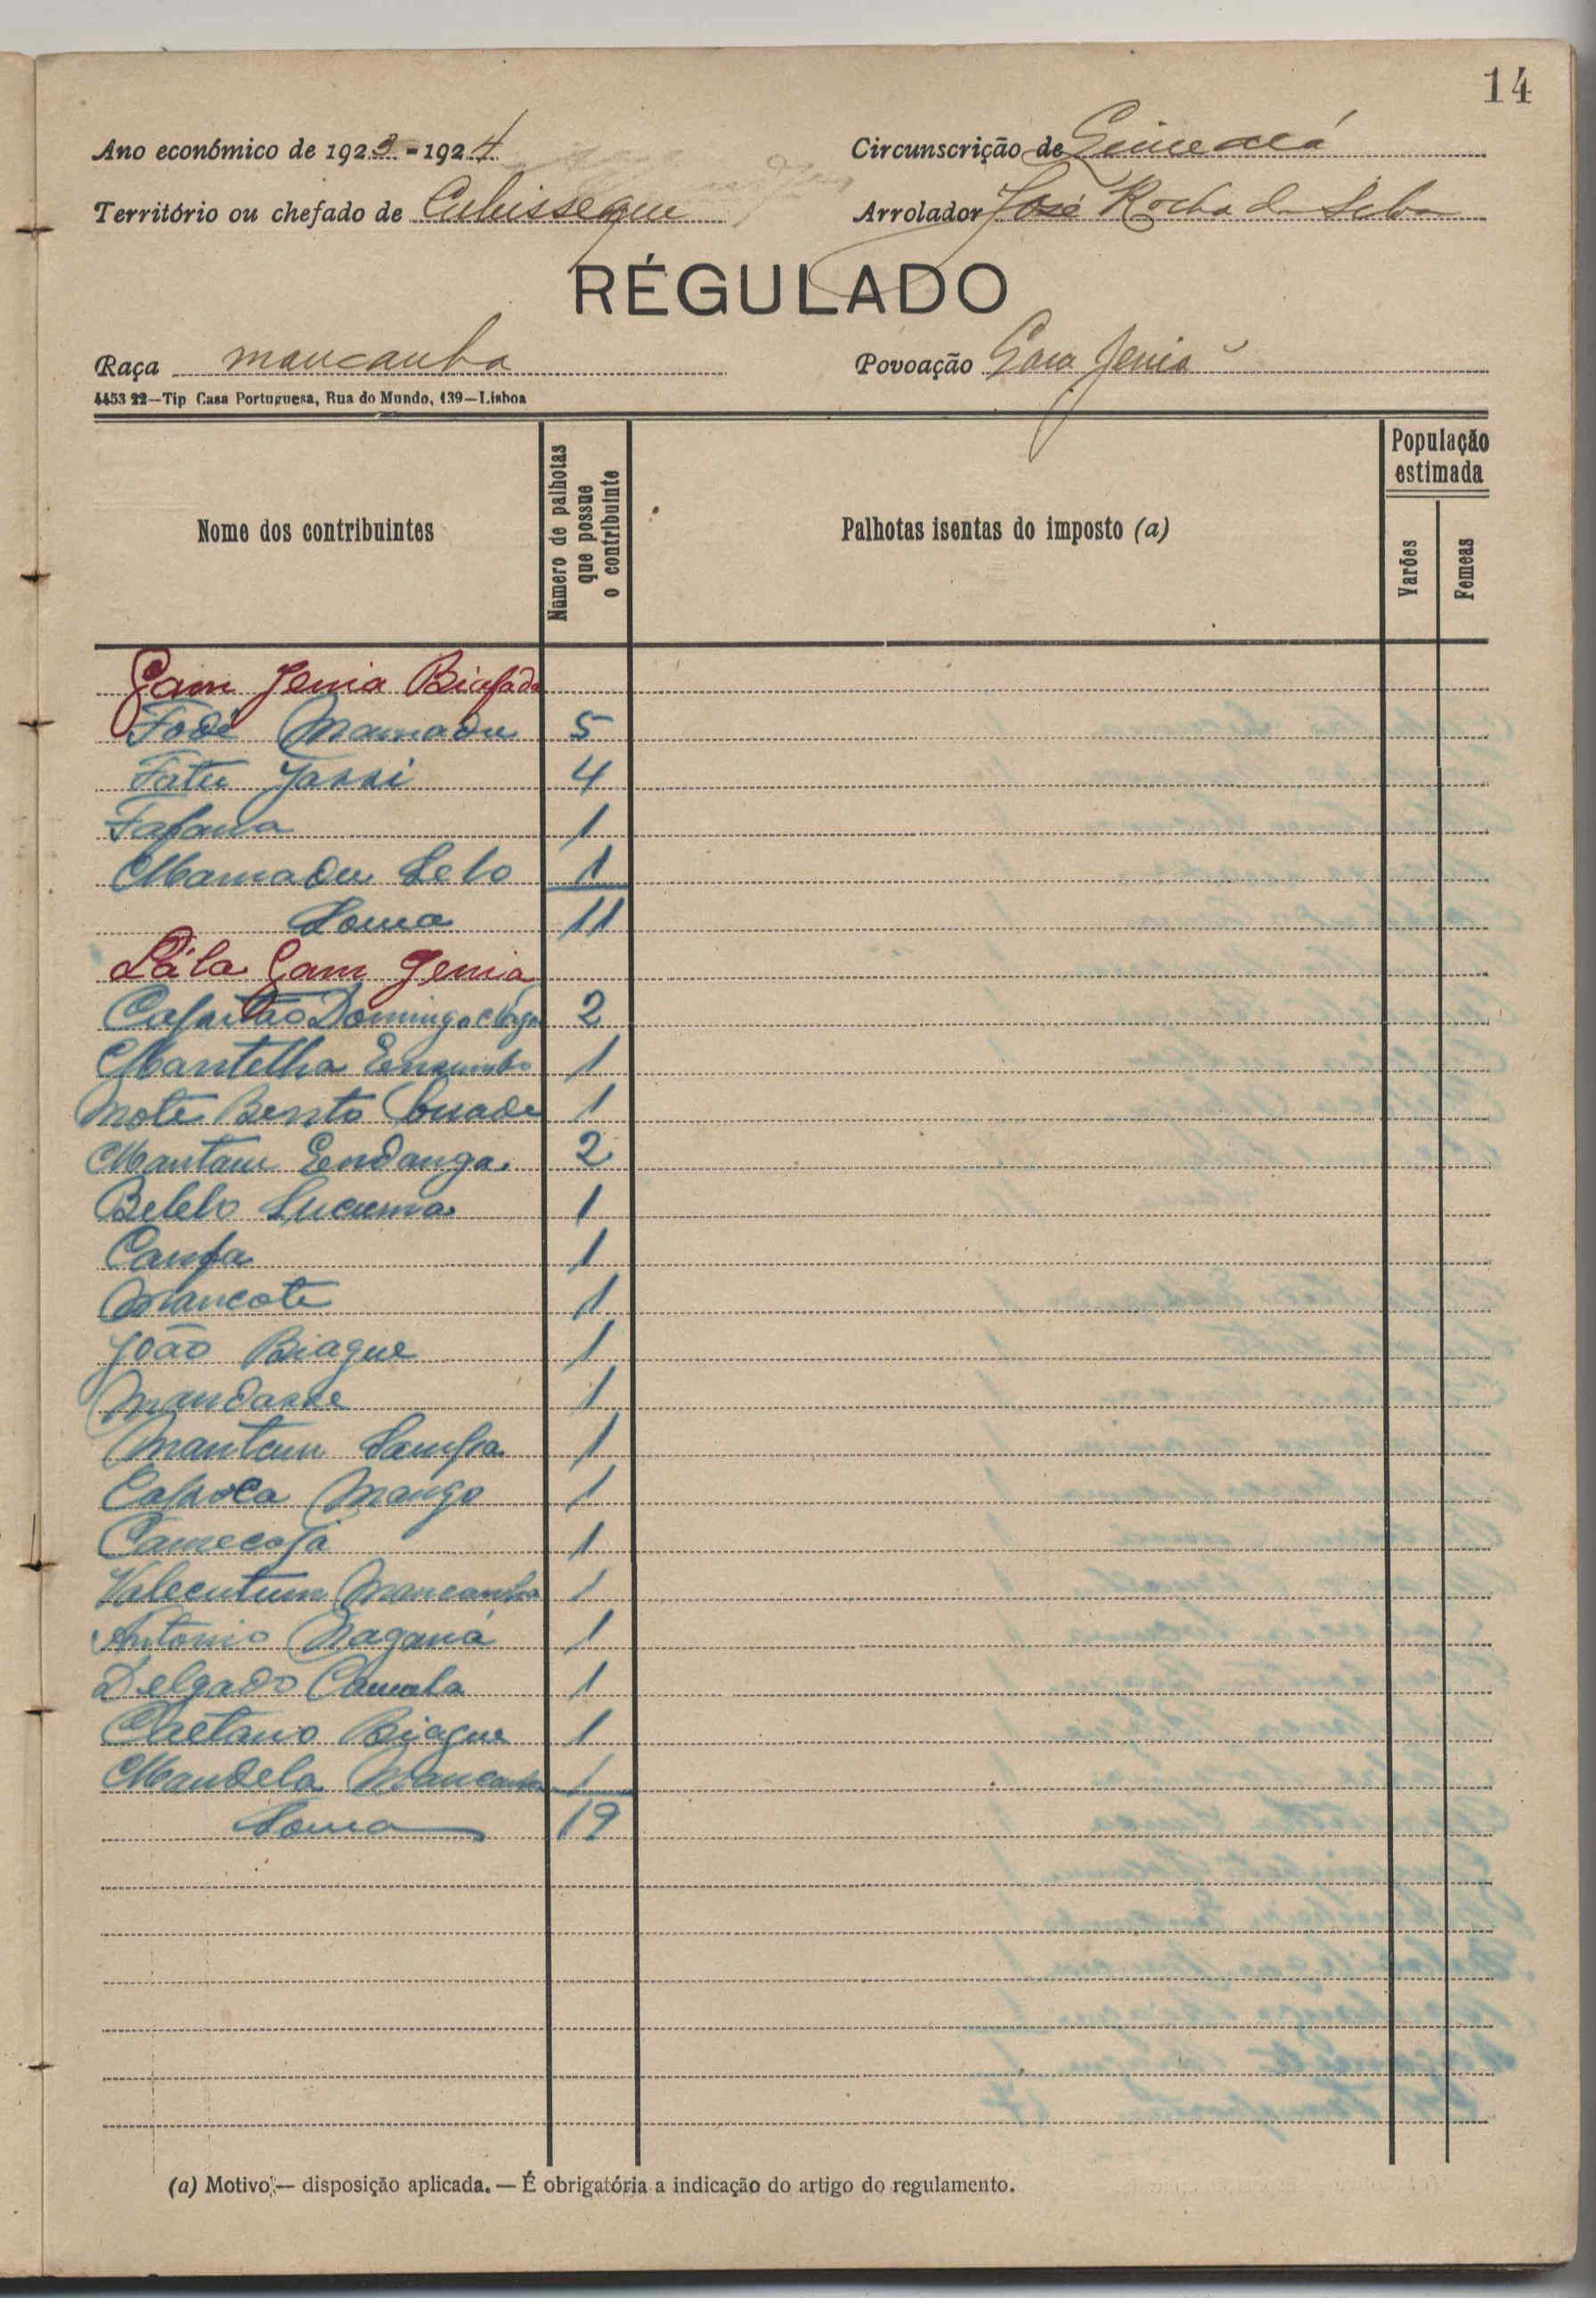 14
Ano económico de 1923-1924
Circunscrição de
Território ou chefado de Cubisseque
Arrolador José Rocha da Silva
RÉGULADO
Raça mancanha
Povoação Gam Jenia
4453 22—Tip Casa Portuguesa, Rua do Mundo, 139—Lisboa
Nome dos contribuintes
Número de palhotas que possue o contribuinte
Palhotas isentas do imposto (a)
População estimada
Varões
Femeas
Gam Jenia Biafada
Fodé Mamadu 5
Fatu Jassi 4
Fafana 1
Mamadu Selo 1
Soma 11
Lála Gam Genia
Capitão Domingo 2
Mantelha 1
Note Bento 1
Mantam Endanga 2
Belelo Lucuma 1
Canfa 1
Mancote 1
João Biague 1
Mandasse 1
Mantam Sampa 1
Capoca Mango 1
1
Valecutum Mancanha 1
Antonio Naganá 1
Delgado Camala 1
Caetano Biague 1
Mandela Mancanha 1
Soma 19
(a) Motivo — disposição aplicada. — É obrigatória a indicação do artigo do regulamento.